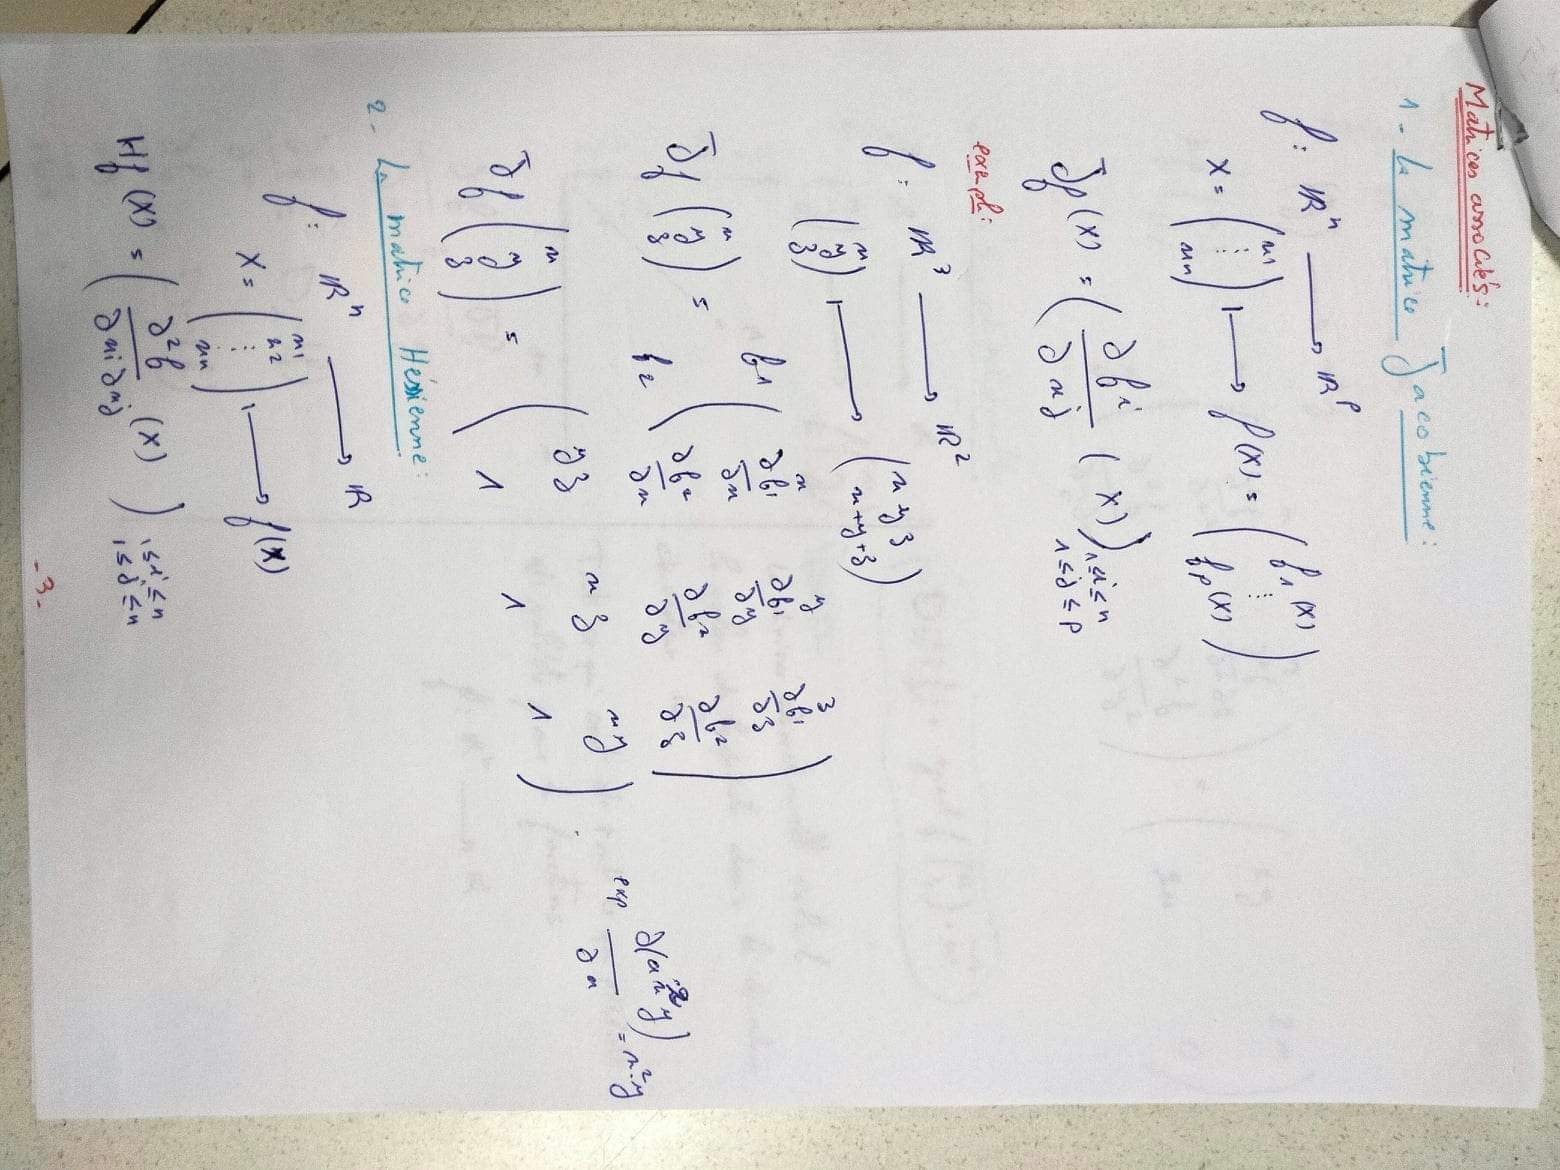 Matrices associés:
1 - La matrice Jacobienne:
f: ℝⁿ ⟶ ℝᵖ
X = (x1 ⋮ xn) ⟼ f(X) = (f1(X) ⋮ fp(X))
Jf(X) = (∂fi/∂xj (X)) 1≤i≤n
1≤j≤p
exempl:
f: ℝ³ ⟶ ℝ²
(x y z) ⟼ (xyz x+y+z)
x y z
Jf (x y z) = f1 (∂f1/∂x ∂f1/∂y ∂f1/∂z
f2 ∂f2/∂x ∂f2/∂y ∂f2/∂z)
exp ∂(a x²y)/∂a = x²y
Jf (x y z) = (yz xz xy
1 1 1) .
2 - La matrice Héssienne:
f: ℝⁿ ⟶ ℝ
X = (x1 x2 ⋮ xn) ⟼ f(X)
Hf(X) = (∂²f/∂xi∂xj (X)) 1≤i≤n
1≤j≤n
-3-